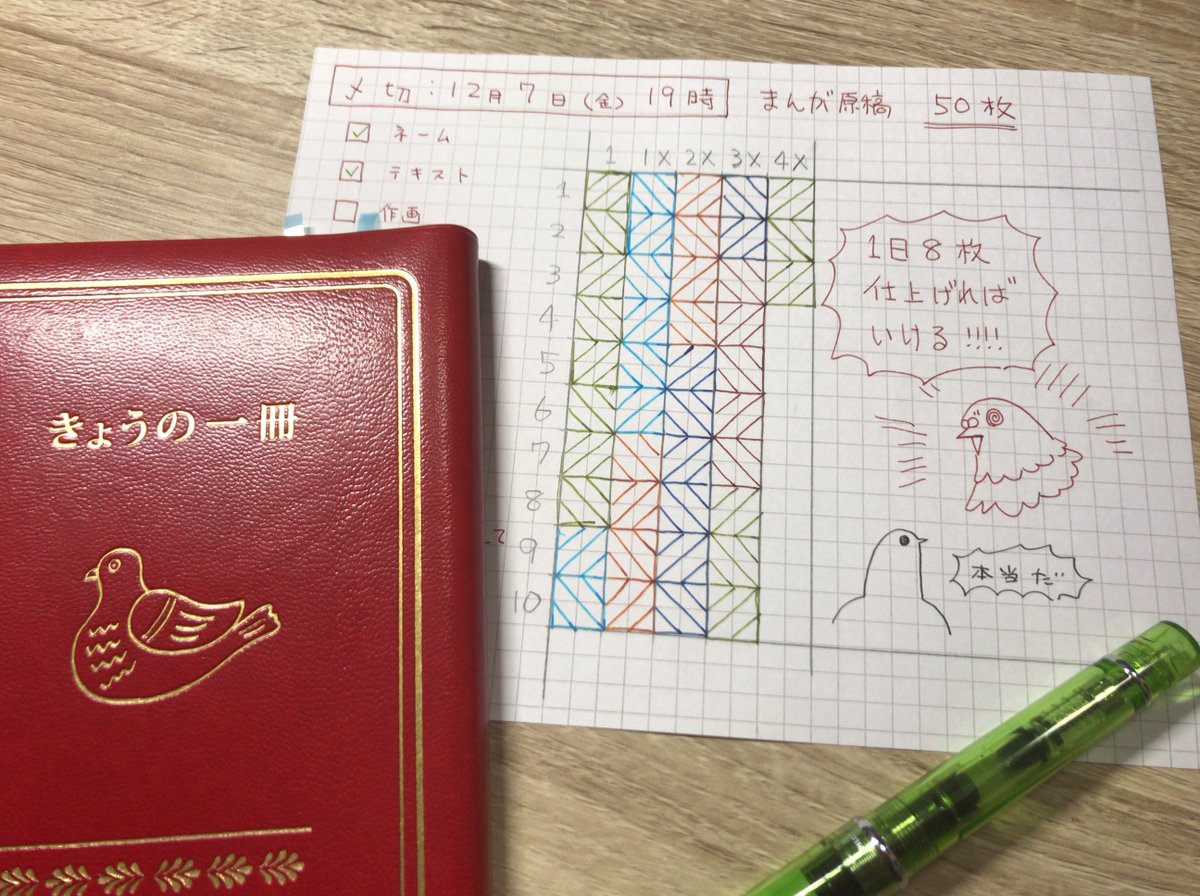 〆切:12月7日(金)19時
まんが原稿 50枚
ネーム
テキスト
作画
1 1X 2X 3X 4X
1
2
3
4
5
6
7
8
9
10
1日8枚
仕上げれば
いける!!!!
本当だ
て
きょうの一冊